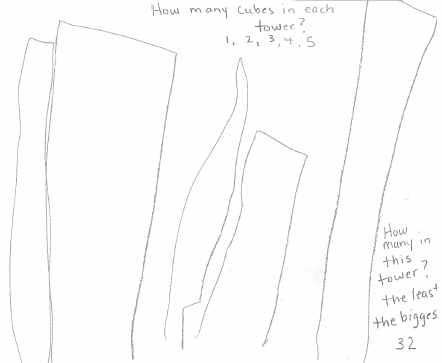 How many cubes in each
tower?
1, 2, 3, 4, 5
How
many in
this
tower?
the least
the bigges
32